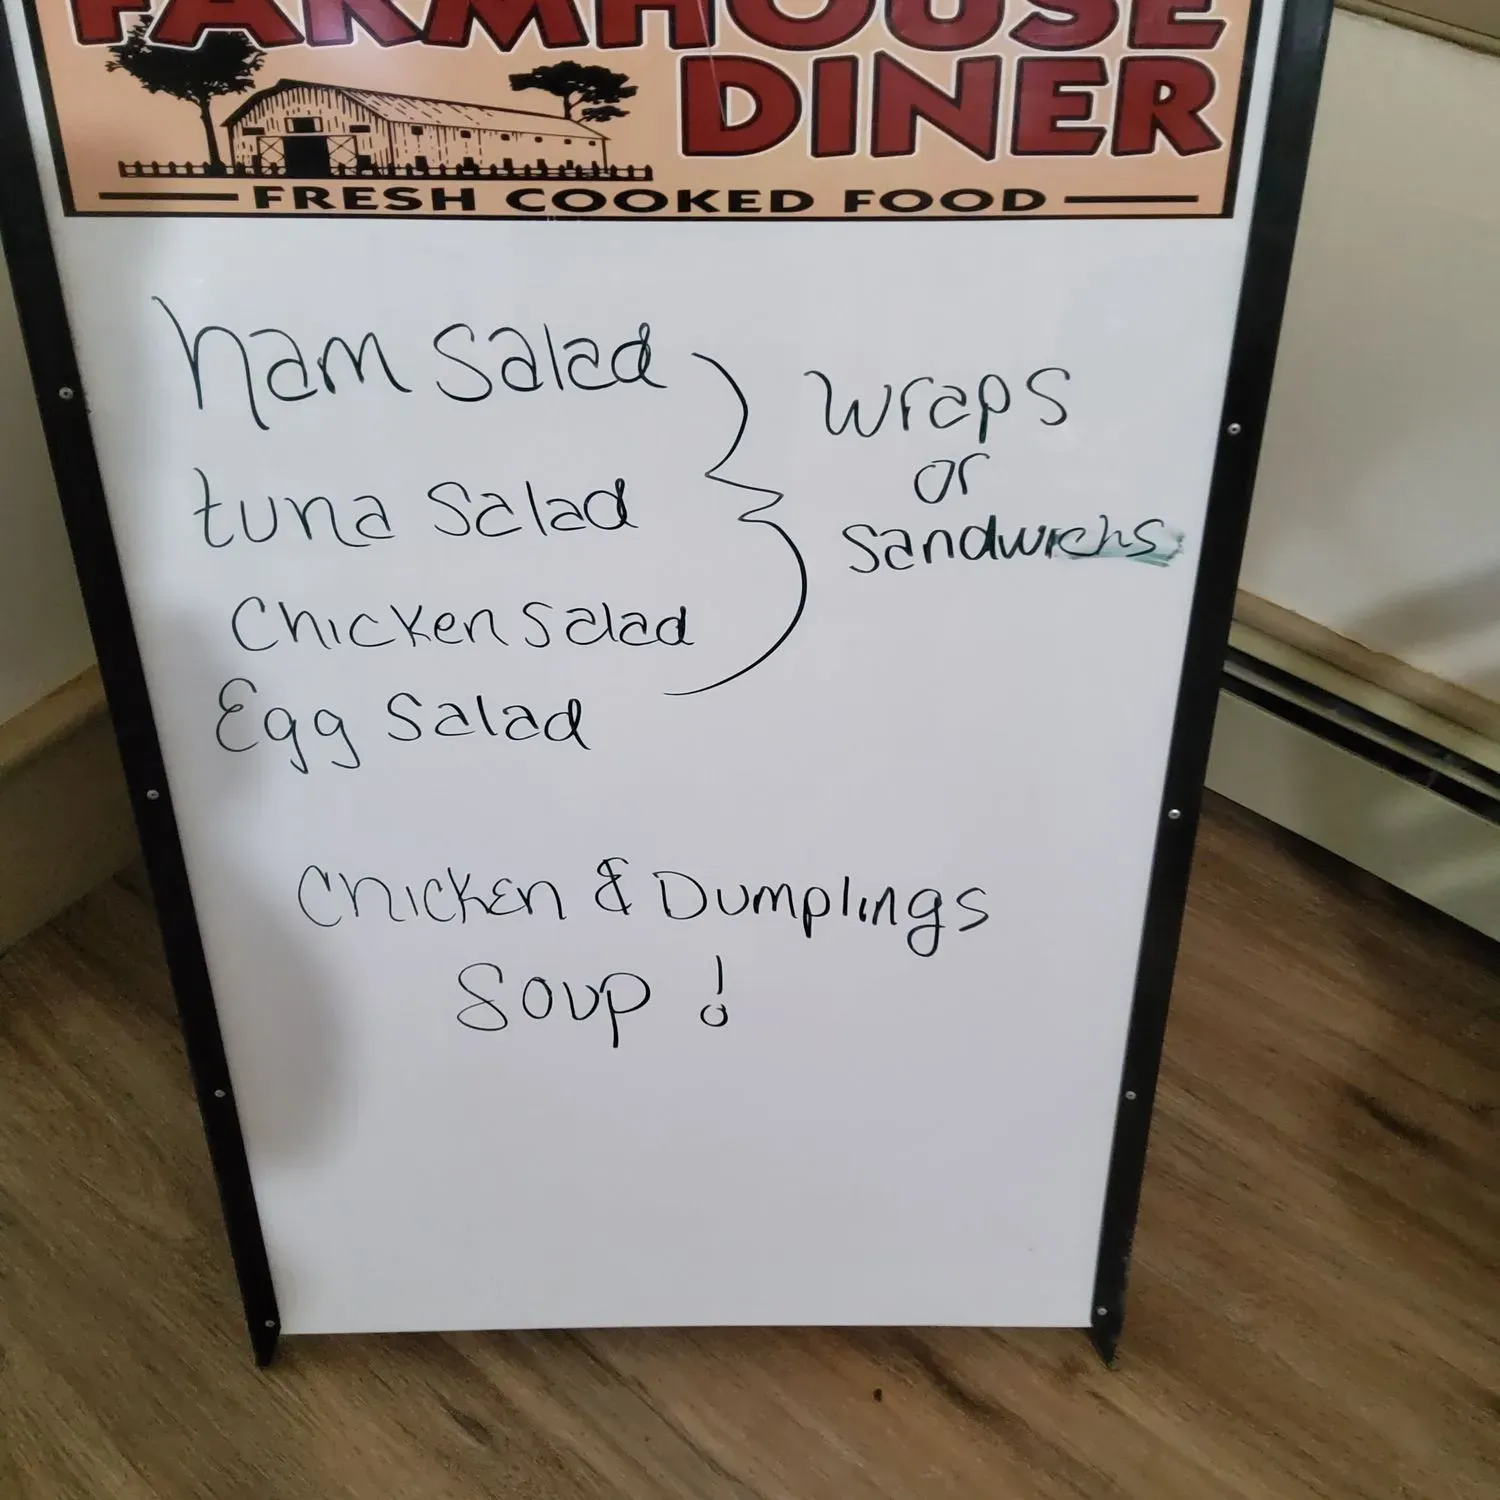 FARMHOUSE
DINER
FRESH COOKED FOOD
ham salad
tuna salad
Chicken salad
Egg salad
wraps
or
sandwichs
Chicken & Dumplings
Soup !